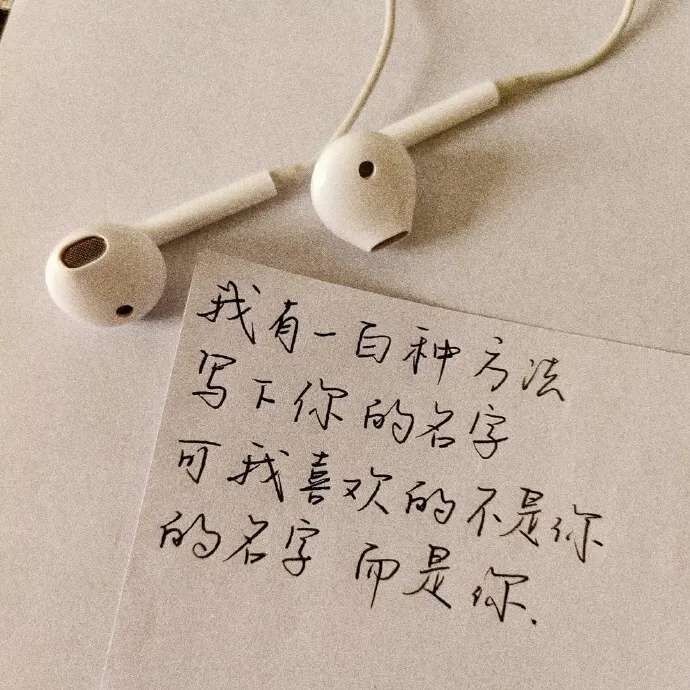 我有一百种方法
写下你的名字
可我喜欢的不是你
的名字 而是你.